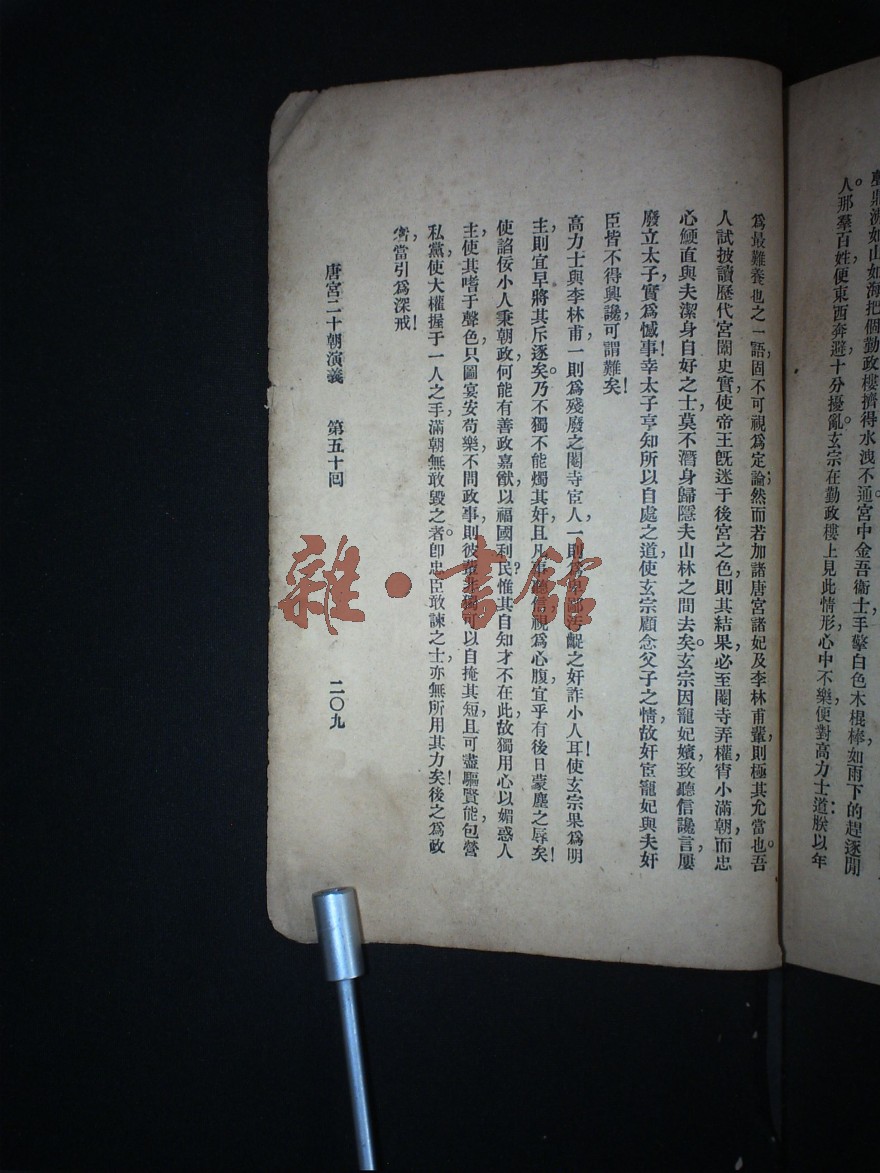 人。那羣百姓便東西奔避十分擾亂。玄宗在勤政樓上見此情形，心中不樂，便對高力士道：朕以年
如山如海把個勤政樓擠得水洩不通。宮中金吾衞士手擎白色木棍棒如雨下的趕逐閒
爲最難養也之一語固不可視爲定論；然而若加諸唐宮諸妃及李林甫輩，則極其允當也。吾
人試披讀歷代宮闈史實，使帝王旣迷于後宮之色，則其結果必至閹寺弄權，宵小滿朝，而忠
心鯁直與夫潔身自好之士，莫不潛身歸隱夫山林之間去矣。玄宗因寵妃嬪，致聽信讒言，屢
廢立太子，實爲憾事！幸太子亨知所以自處之道，使玄宗顧念父子之情，故奸宦寵妃與夫奸
臣，皆不得興讒，可謂難矣！
高力士與李林甫，一則爲殘廢之閹寺宦人，一則爲卑鄙汚齪之奸詐小人耳！使玄宗果爲明
主，則宜早將其斥逐矣。乃不獨不能燭其奸，且凡事聽信，視爲心腹，宜乎有後日蒙塵之辱矣！
使諂佞小人秉朝政，何能有善政嘉猷，以福國利民？惟其自知才不在此，故獨用心以媚惑人
主，使其嗜于聲色，只圖宴安苟樂，不問政事，則彼輩非獨可以自掩其短，且可盡驅賢能，包營
私黨，使大權握于一人之手，滿朝無敢毀之者。卽忠臣敢諫之士，亦無所用其力矣！後之爲政
者，當引爲深戒！
唐宮二十朝演義　第五十回　二〇九
雜·書館